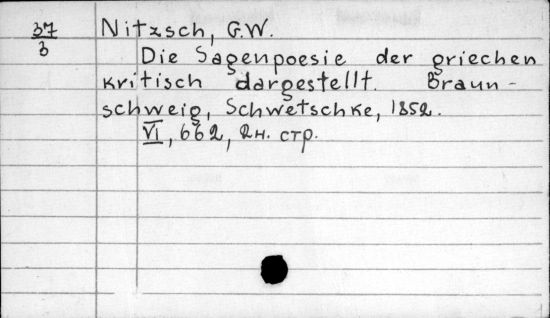 37
3
Nitzsch, G.W.
Die Sagenpoesie der griechen
kritisch dargestellt. Braun-
schweig, Schwetschke, 1852.
VI, 662, 2 н. стр.